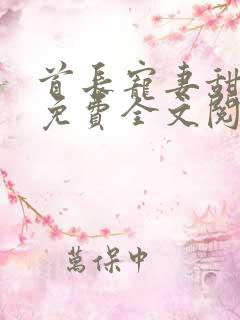 首长寵妻甜
免費全文閱
萬保中